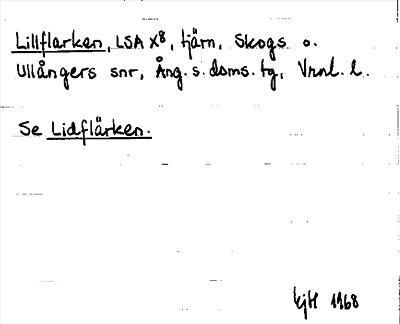 Lillflarken, LSA X8, tjärn, Skogs o.
Ullångers snr, Ång. s. doms. tg, Vrnl. l.
Se Lidflärken.
kjH 1968